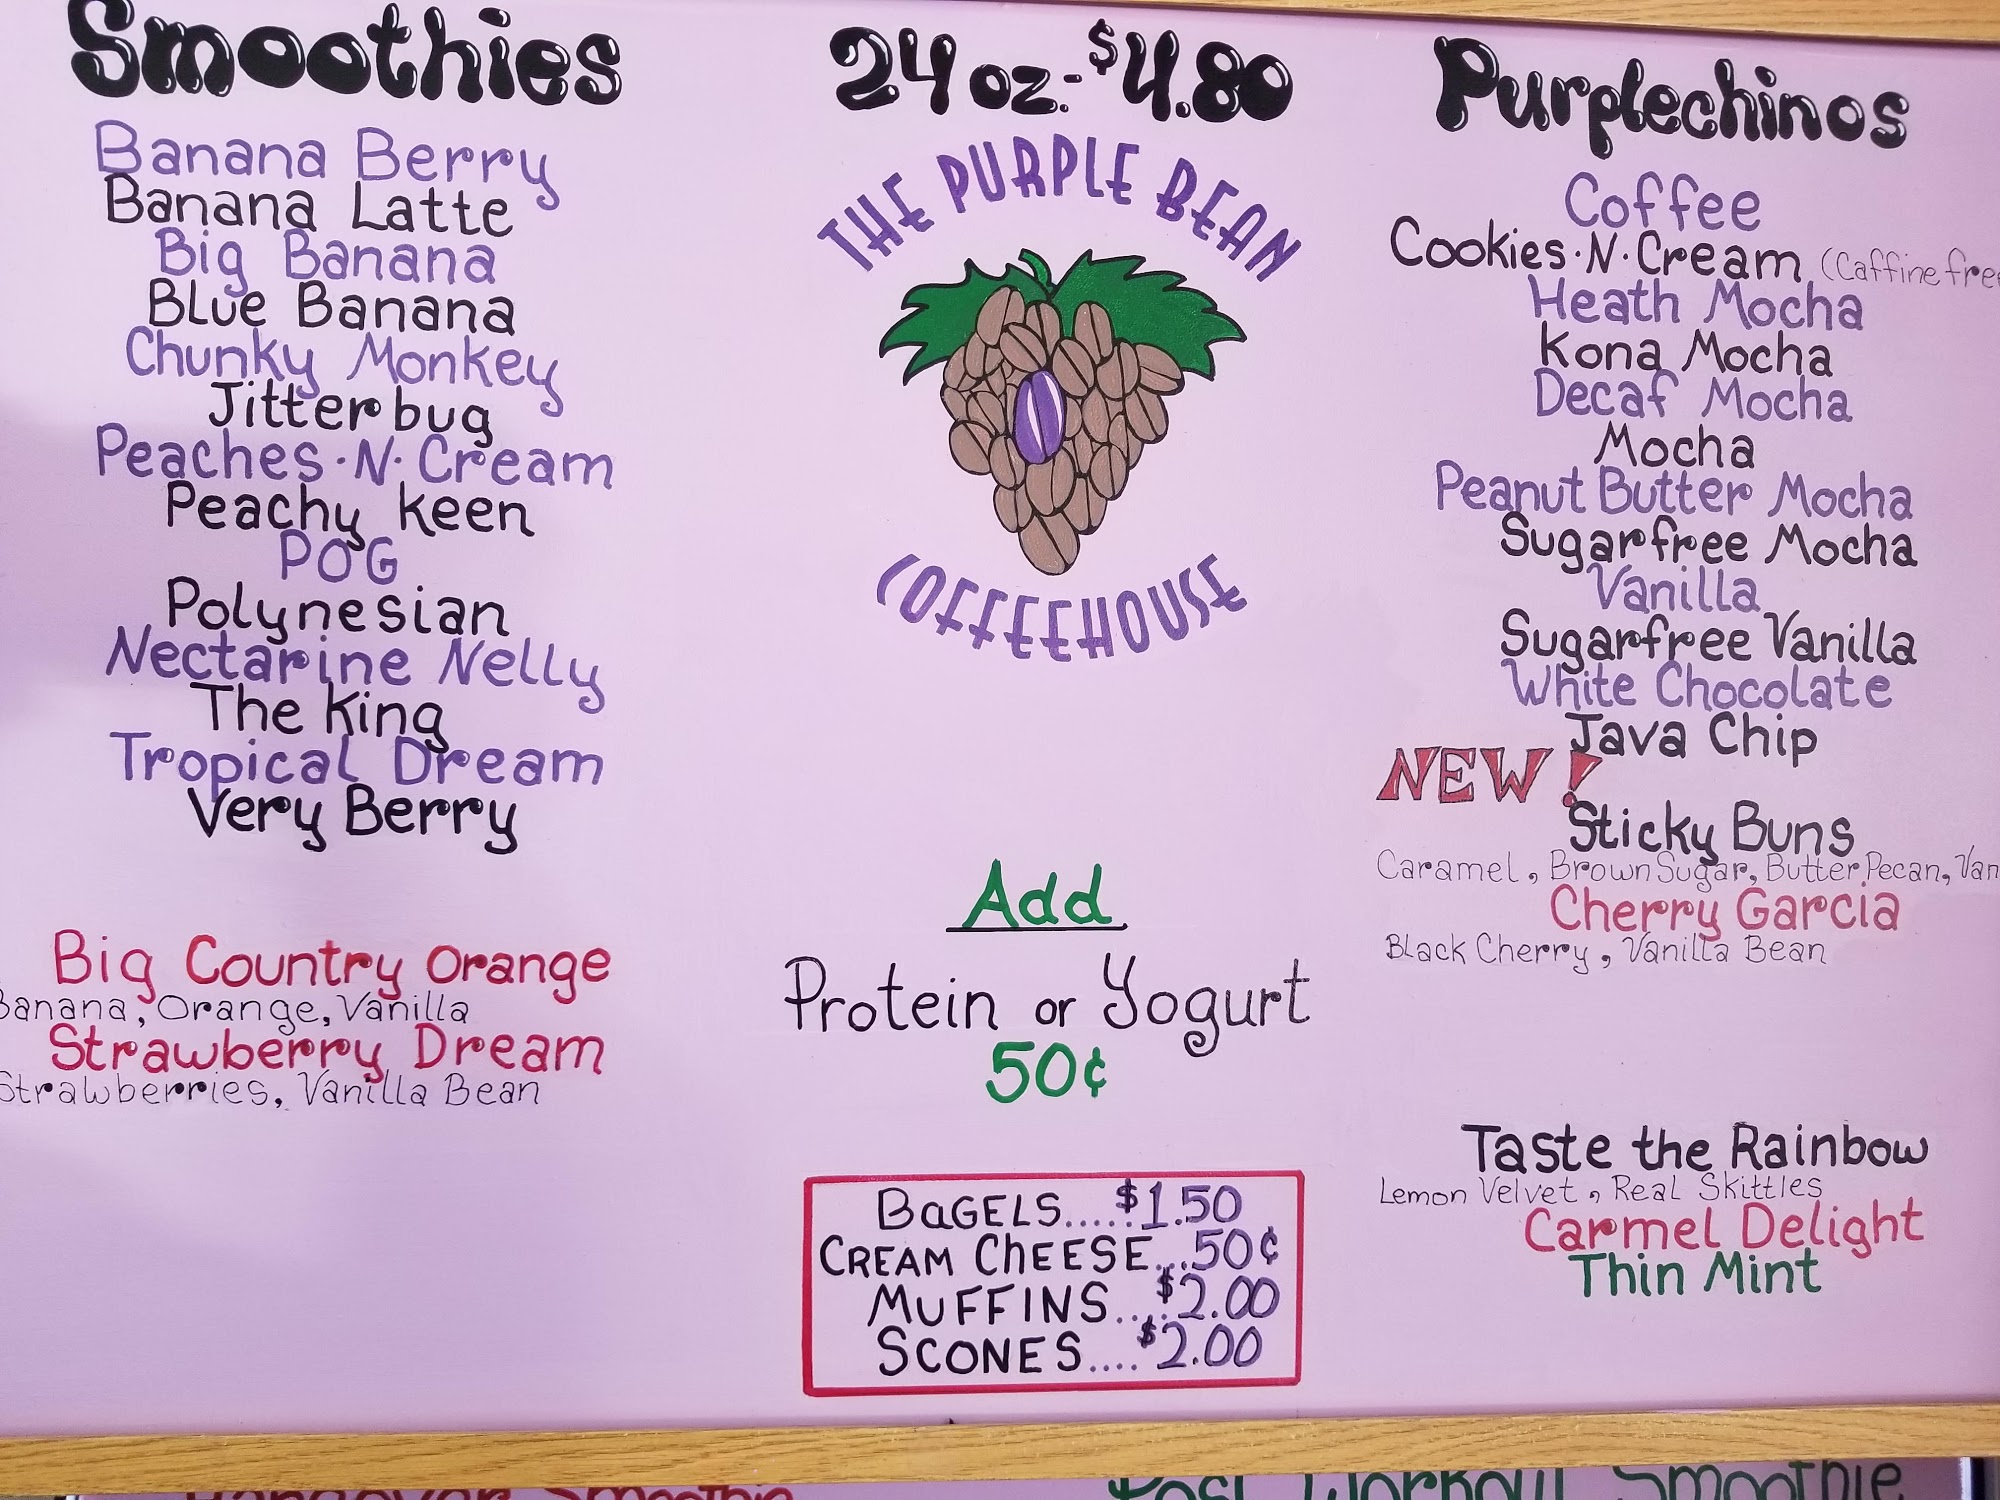 Smoothies
Banana Berry
Banana Latte
Big Banana
Blue Banana
Chunky Monkey
Jitterbug
Peaches·N·Cream
Peachy Keen
POG
Polynesian
Nectarine Nelly
The King
Tropical Dream
Very Berry
Big Country Orange
Banana, Orange, Vanilla
Strawberry Dream
Strawberries, Vanilla Bean
24 oz.-$4.80
THE PURPLE BEAN
COFFEEHOUSE
Add
Protein or Yogurt
50¢
BAGELS.....$1.50
CREAM CHEESE...50¢
MUFFINS....$2.00
SCONES....$2.00
Purplechinos
Coffee
Cookies·N·Cream (Caffine free
Heath Mocha
Kona Mocha
Decaf Mocha
Mocha
Peanut Butter Mocha
Sugarfree Mocha
Vanilla
Sugarfree Vanilla
White Chocolate
Java Chip
NEW!
Sticky Buns
Caramel, Brown Sugar, Butter Pecan, Van
Cherry Garcia
Black Cherry, Vanilla Bean
Taste the Rainbow
Lemon Velvet, Real Skittles
Carmel Delight
Thin Mint
Hangover Smoothie
Post Workout Smoothie